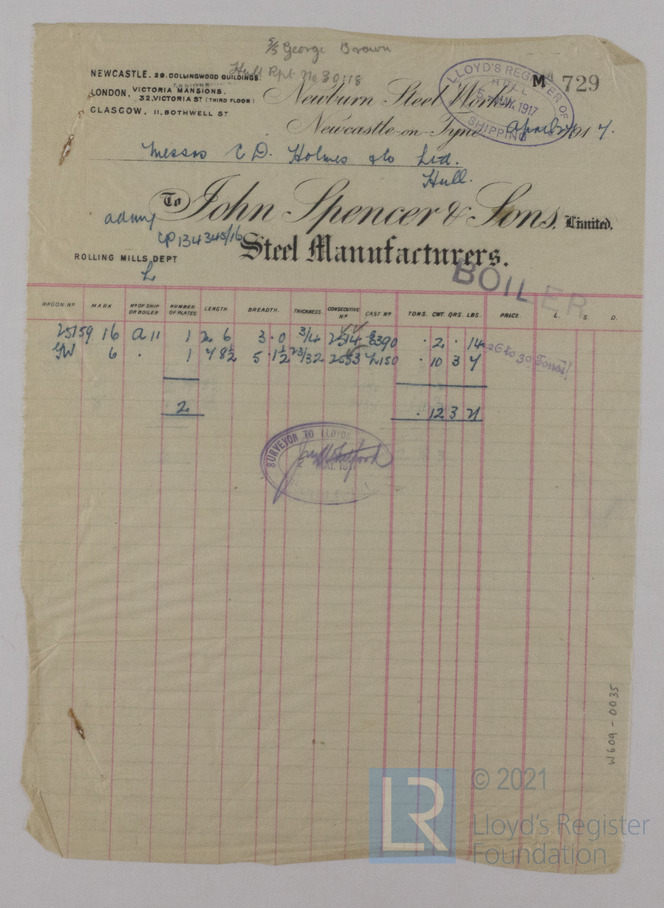 S/S George Brown
Hull Rpt. No 30118
NEWCASTLE. 29. COLLINGWOOD BUILDINGS.
LONDON, VICTORIA MANSIONS.
32, VICTORIA ST (THIRD FLOOR)
GLASGOW, 11, BOTHWELL ST
M 729
Newburn Steel Works
Newcastle-on-Tyne April 1917.
LLOYD'S REGISTER OF SHIPPING
HULL
1917
Messrs C. D. Holmes & Co Ltd.
Hull.
To John Spencer & Sons, Limited.
Steel Manufacturers.
CP134345/16
ROLLING MILLS DEPT
L
BOILER
WAGON Nº MARK Nº OF SHIP OR BOILER NUMBER OF PLATES LENGTH BREADTH. THICKNESS. CONSECUTIVE Nº CAST Nº TONS. CWT. QRS. LBS. PRICE. £. S. D.
25159 16 A11 1 2 6 3 . 0 3/4 8390 . 2 . 14
GW 6 . 1 7 8½ 5 . 1½ 23/32 2653 7150 . 10 3 7
26 to 30 Tons
2 . 12 3 21
SURVEYOR TO LLOYDS
W609-0035
LR
© 2021
Lloyd's Register
Foundation